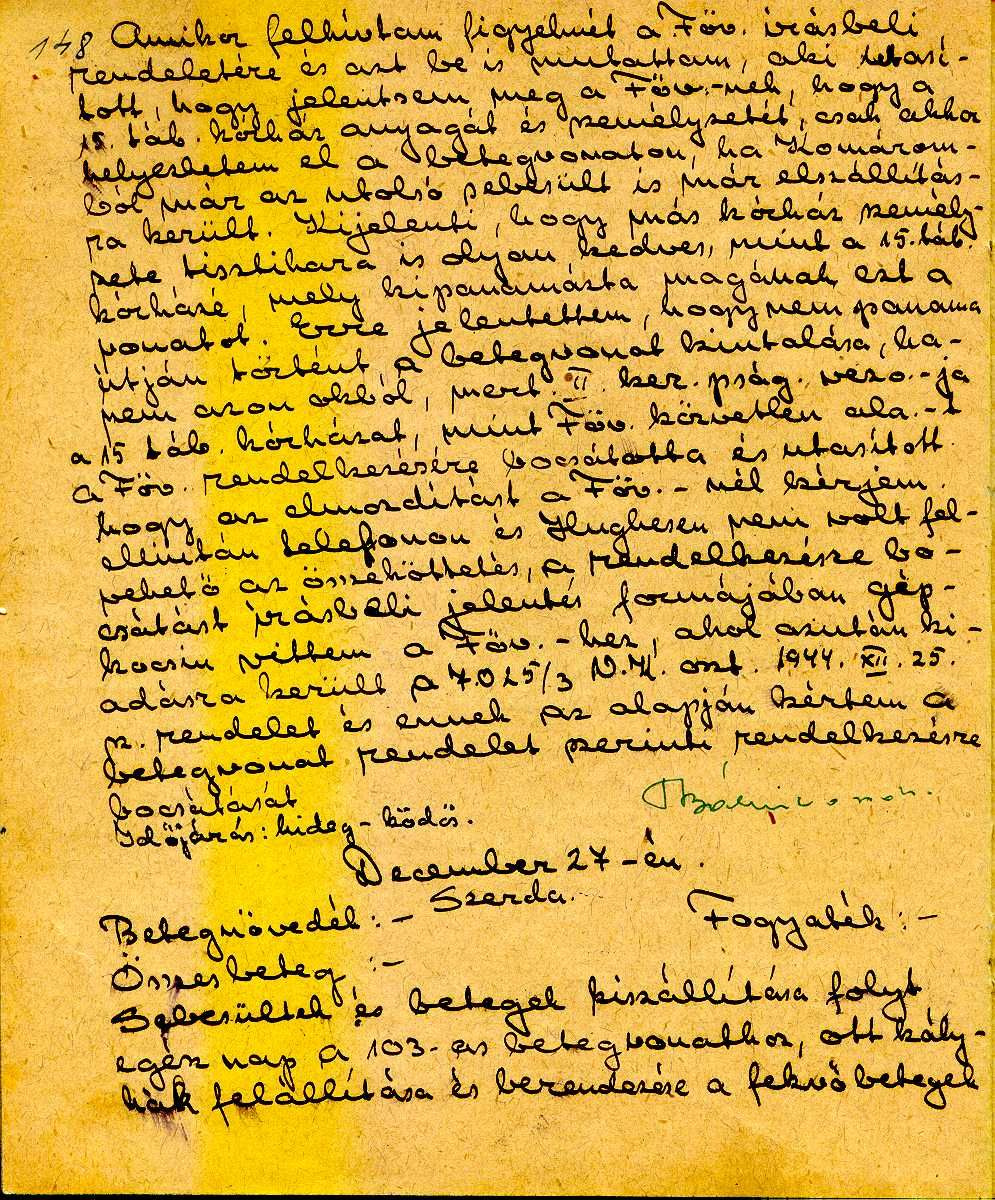 148 Amikor felhívtam figyelmét a Föv. írásbeli
rendeletére és azt be is mutattam, aki utasí-
tott, hogy jelentsem meg a Föv.-nek, hogy a
15. táb. kórház anyagát és személyzetét, csak akkor
helyezhetem el a betegvonaton, ha Komárom-
ból már az utolsó sebesült is már elszállítás-
ra került. Kijelenti, hogy más kórház személy-
zete tisztikara is olyan kedves, mint a 15. táb.
kórházé, mely kipanamázta magának ezt a
vonatot. Erre jelentettem, hogy nem panama
útján történt a betegvonat kiutalása, ha-
nem azon okból, mert II. ker. pság. vezo.-ja
a 15 táb. kórházat, mint Föv. közvetlen ala.-t
a Föv. rendelkezésére bocsátotta és utasított
hogy az elmozdítást a Föv.-nél kérjem.
elmután telefonon és Hughesen nem volt fel-
vehető az összeköttetés, a rendelkezésre bo-
csátást írásbeli jelentés formájában gép-
kocsin vittem a Föv.-hez, ahol azután ki-
adásra került a 7025/3 N.K. oszt. 1944. XII. 25.
sz. rendelet és ennek az alapján kértem a
betegvonat rendelet szerinti rendelkezésre
bocsátását
Időjárás: hideg-ködös.
December 27-én.
Szerda.
Betegnövedék: - Fogyaték: -
Összesbeteg: -
Sebesültek és betegek kiszállítása folyt
egész nap a 103-as betegvonathoz, ott kály-
hák felállítása és berendezése a fekvőbetegek